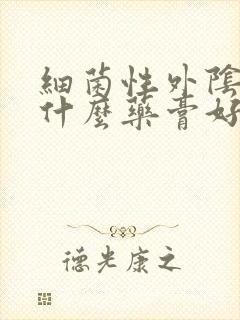 細菌性外陰
什麼藥膏好
德光康之